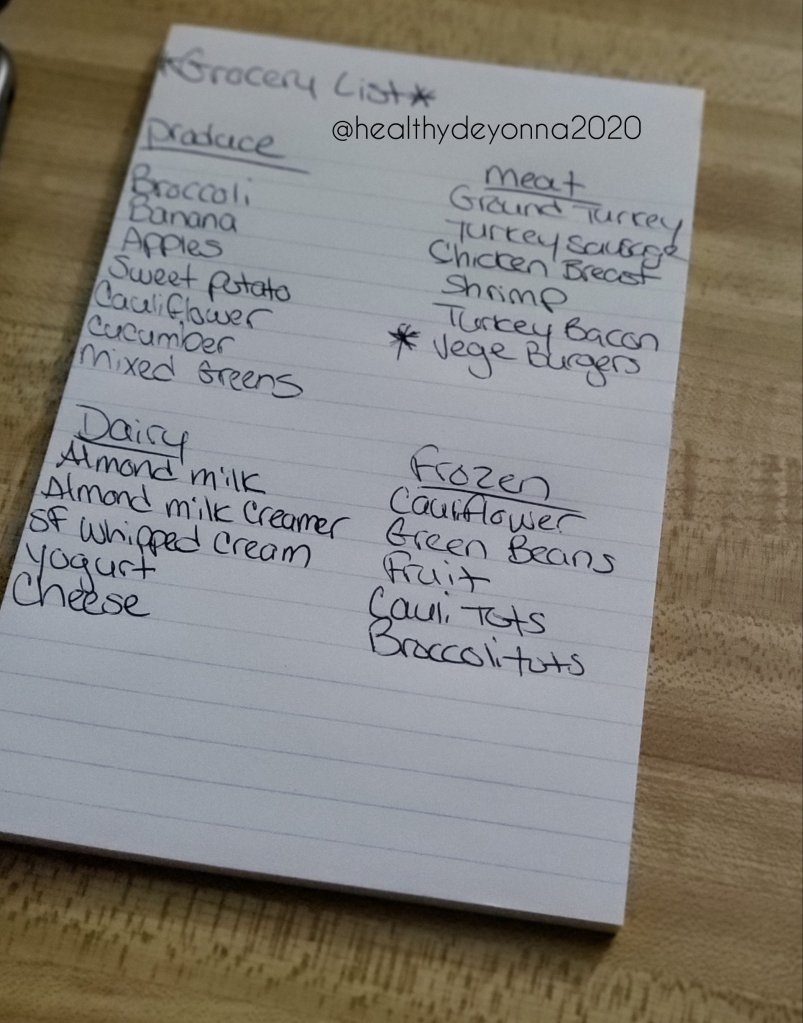 *Grocery List*
@healthydeyonna2020
Produce
Broccoli
Banana
Apples
Sweet Potato
Cauliflower
Cucumber
Mixed Greens
Meat
Ground Turkey
Turkey Sausage
Chicken Breast
Shrimp
Turkey Bacon
* Vege Burgers
Dairy
Almond milk
Almond milk Creamer
SF Whipped Cream
Yogurt
Cheese
Frozen
Cauliflower
Green Beans
Fruit
Cauli Tots
Broccoli tots